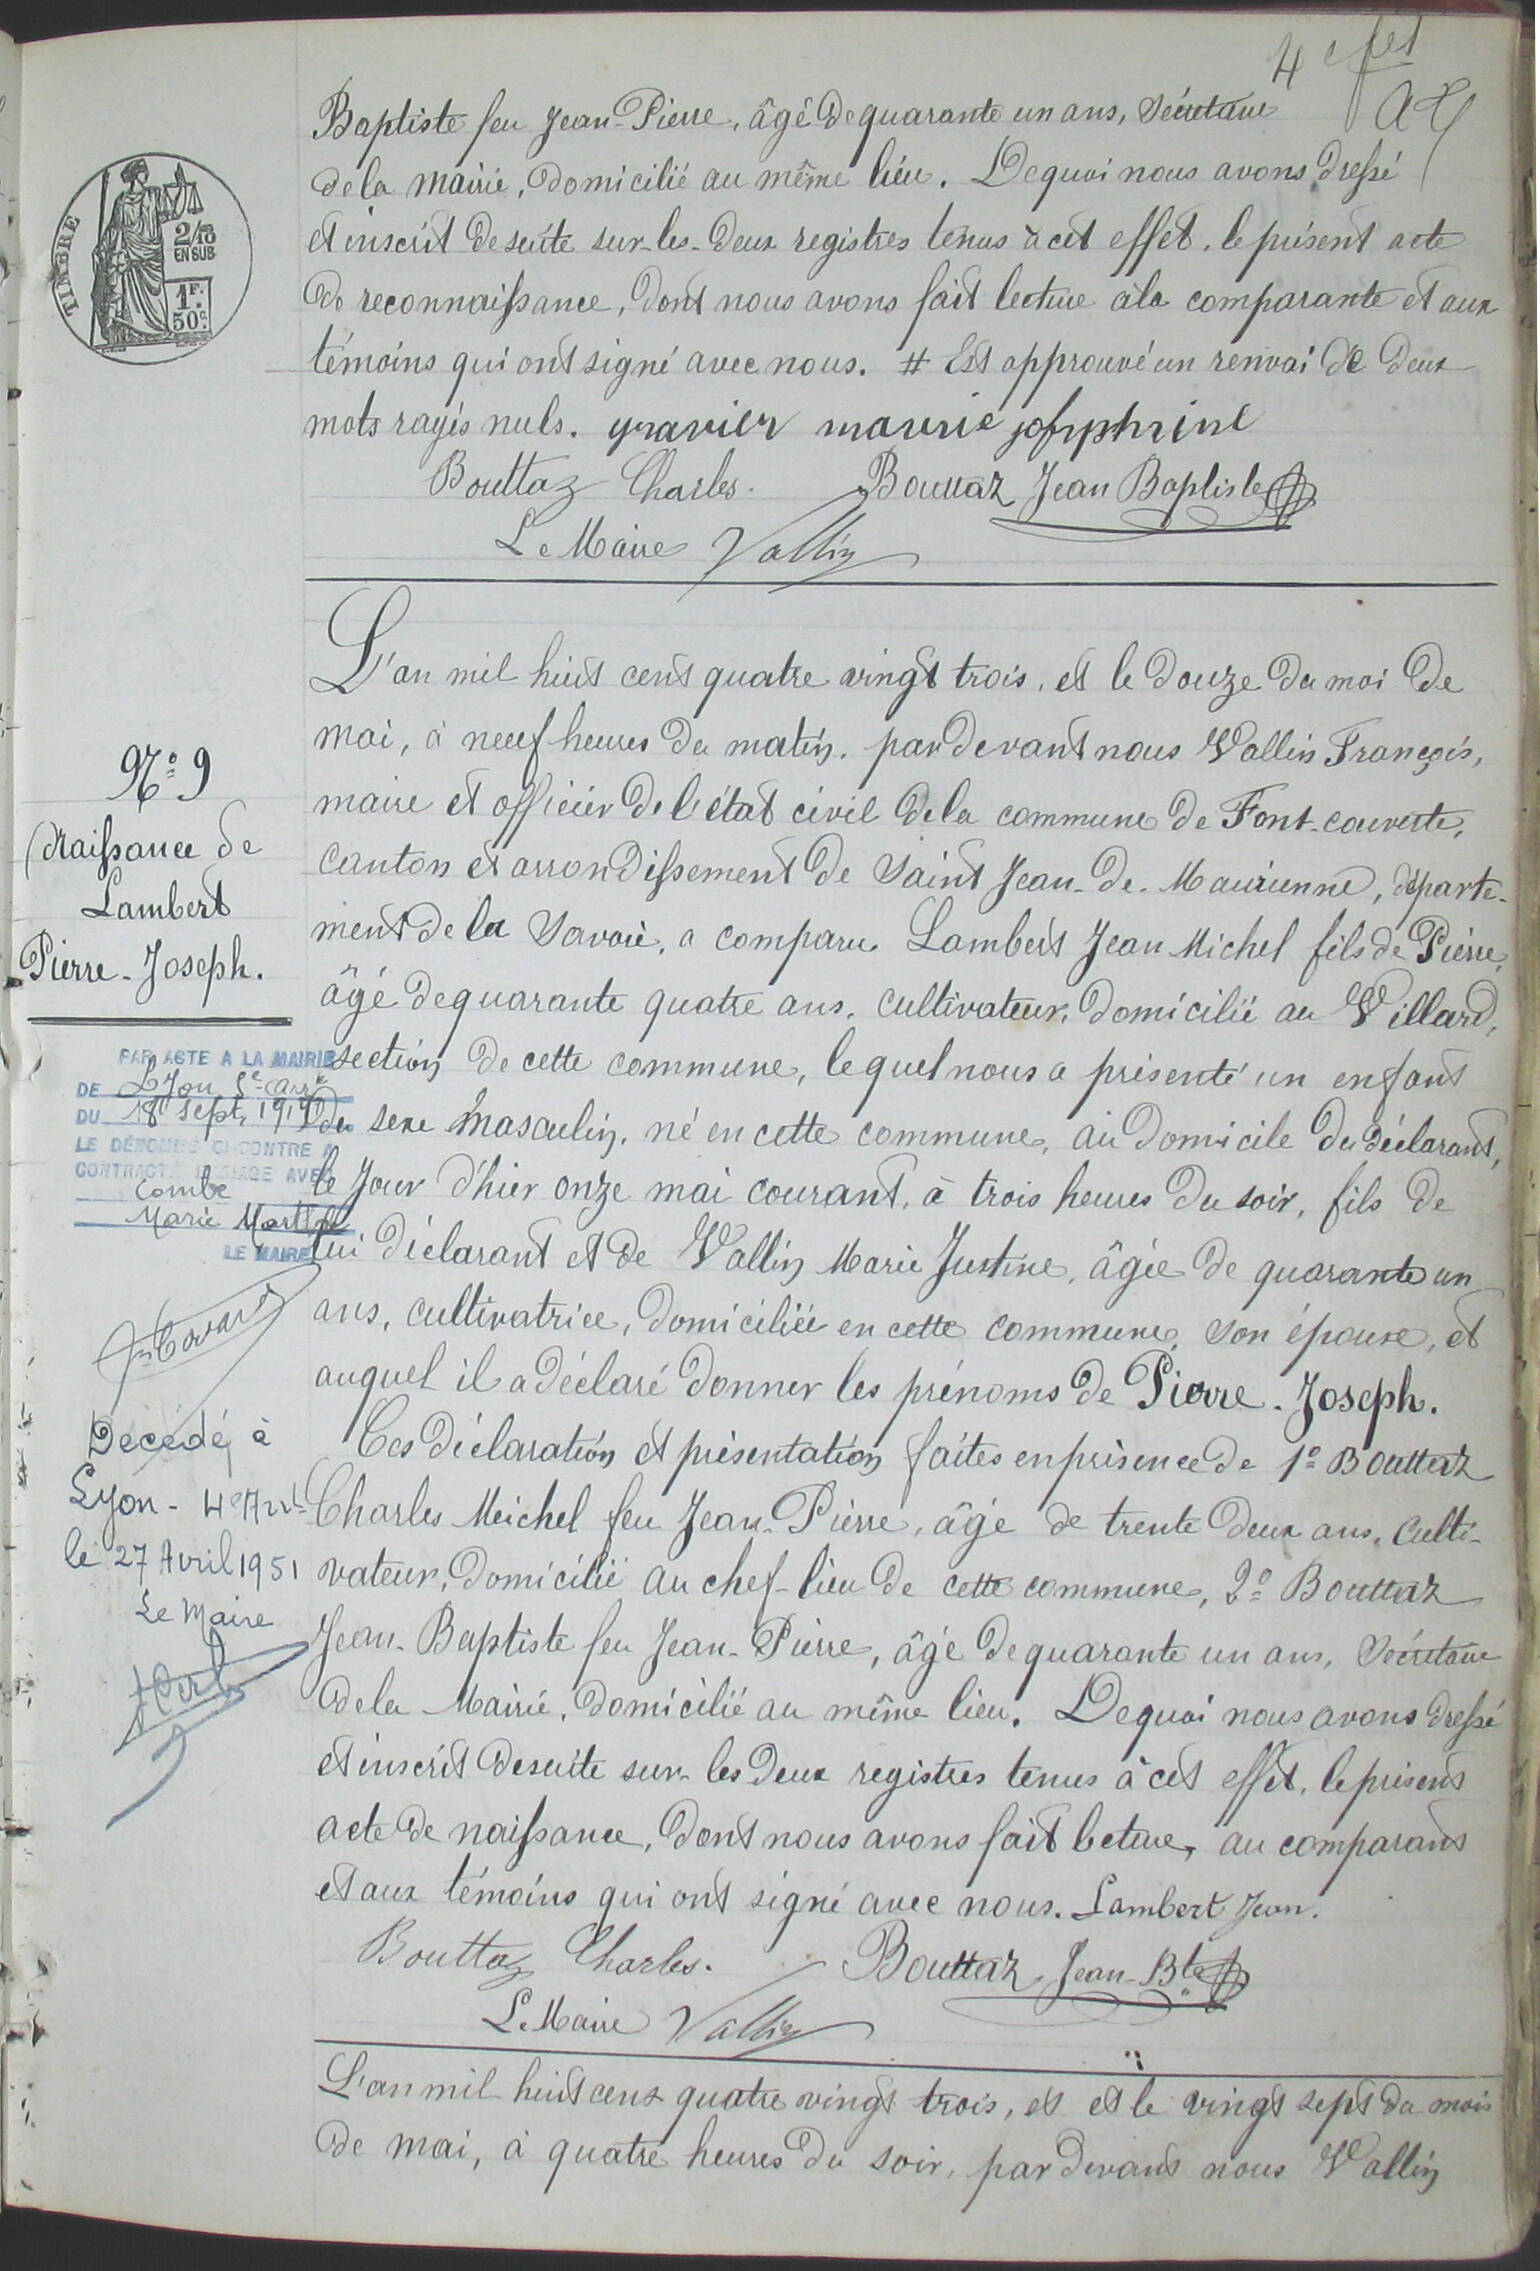 4e
Baptiste feu Jean-Pierre, âgé de quarante un ans, Sécretaire
de la mairie, domicilié au même lieu. De quoi nous avons dressé
et inscrit de suite sur-les-deux registres tenus à cet effet, le présent acte
de reconnaissance, dont nous avons fait lecture à la comparante et aux
témoins qui ont signé avec nous. # Est approuvé un renvoi de deux
mots rayés nuls. gravier marrie josephrine
Bouttaz Charles. Bouttaz Jean Baptiste
Le Maire Vallin
TIMBRE
2/10
EN SUS
1F.
50c.
L'an mil huit cent quatre vingt trois, et le douze du moi de
mai, à neuf heures du matin. par devant nous Vallin François,
maire et officier de l'état civil de la commune de Font-couverte,
canton et arrondissement de Saint Jean-de-Maurienne, départe-
ment de la Savoie, a comparu Lambert Jean Michel fils de Pierre,
âgé de quarante quatre ans, cultivateur, domicilié au Villard,
section de cette commune, lequel nous a présenté un enfant
du sexe masculin, né en cette commune, au domicile du déclarant,
le jour d'hier onze mai courant, à trois heures du soir, fils de
lui déclarant et de Vallin Marie Justine, âgée de quarante un
ans, cultivatrice, domiciliée en cette commune, son épouse, et
auquel il a déclaré donner les prénoms de Pierre-Joseph.
Ces déclaration et présentation faites en présence de 1° Bouttaz
Charles Meichel feu Jean-Pierre, âgé de trente deux ans, culti-
vateur, domicilié au chef-lieu de cette commune, 2° Bouttaz
Jean-Baptiste feu Jean-Pierre, âgé de quarante un ans, Sécrétaire
de la Mairie, domicilié au même lieu. De quoi nous avons dressé
et inscrit de suite sur-les deux registres tenus à cet effet, le présent
acte de naissance, dont nous avons fait lecture, au comparant
et aux témoins qui ont signé avec nous. Lambert Jean.
Bouttaz Charles. Bouttaz Jean-Bte
Le Maire Vallin
N° 9
Naissance de
Lambert
Pierre-Joseph.
PAR ACTE A LA MAIRIE
DE Lyon 5e arrt
DU 18 Sept. 1919
LE DÉNOMMÉ CI-CONTRE A
CONTRACTÉ MARIAGE AVEC
Combe
Marie
LE MAIRE
Décédé à
Lyon - 4e Arrt
le 27 Avril 1951
Le Maire
L'an mil huit cent quatre vingt trois, et et le vingt sept du mois
de mai, à quatre heures du soir, par devant nous Vallin